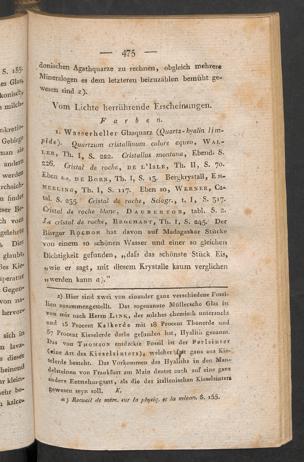 — 475 —
donischen Agathquarze zu rechnen, obgleich mehrere
Mineralogen es dem letzteren beizuzählen bemüht ge-
wesen sind 2).
Vom Lichte herrührende Erscheinungen.
Farben.
1. Wasserheller Glasquarz (Quartz-hyalin lim-
pide). Quartzum cristallinum colore aqueo, WAL-
LER, Th. I, S. 222. Cristallus montana, Ebend. S.
226. Cristal de roche, DE L'ISLE, Th. II, S. 70.
Eben so, DE BORN, Th. I, S. 15. Bergkrystall, EM-
MERLING, Th. I, S. 117. Eben so, WERNER, Ca-
tal. S. 255. Cristal de roche, Sciogr., t. I, S. 517.
Cristal de roche blanc, DAUBENTON, tabl. S. 2.
Le cristal de roche, BROCHANT, Th. I, S. 245. Der
Bürger ROCHON hat davon auf Madagaskar Stücke
von einem so schönen Wasser und einer so gleichen
Dichtigkeit gefunden, „daß das schönste Stück Eis,
„wie er sagt, mit diesem Krystalle kaum verglichen
„werden kann a).“
2) Hier sind zwei von einander ganz verschiedene Fossi-
lien zusammengestellt. Das sogenannte Müllersche Glas ist
von mir nach Herrn LINK, der solches chemisch untersucht
und 15 Procent Kalkerde mit 18 Procent Thonerde und
57 Procent Kieselerde darin gefunden hat, Hyalith genannt.
Das von THOMSON entdeckte Fossil ist der Perlsinter
(eine Art des Kieselsinters), welcher fast ganz aus Kie-
selerde besteht. Das Vorkommen des Hyaliths in den Man-
delsteinen von Frankfurt am Main deutet auch auf eine ganz
andere Entstehungsart, als die des italienischen Kieselsinters
gewesen seyn soll. K.
a) Recueil de mém. sur la physiq. et la minér. S. 155.